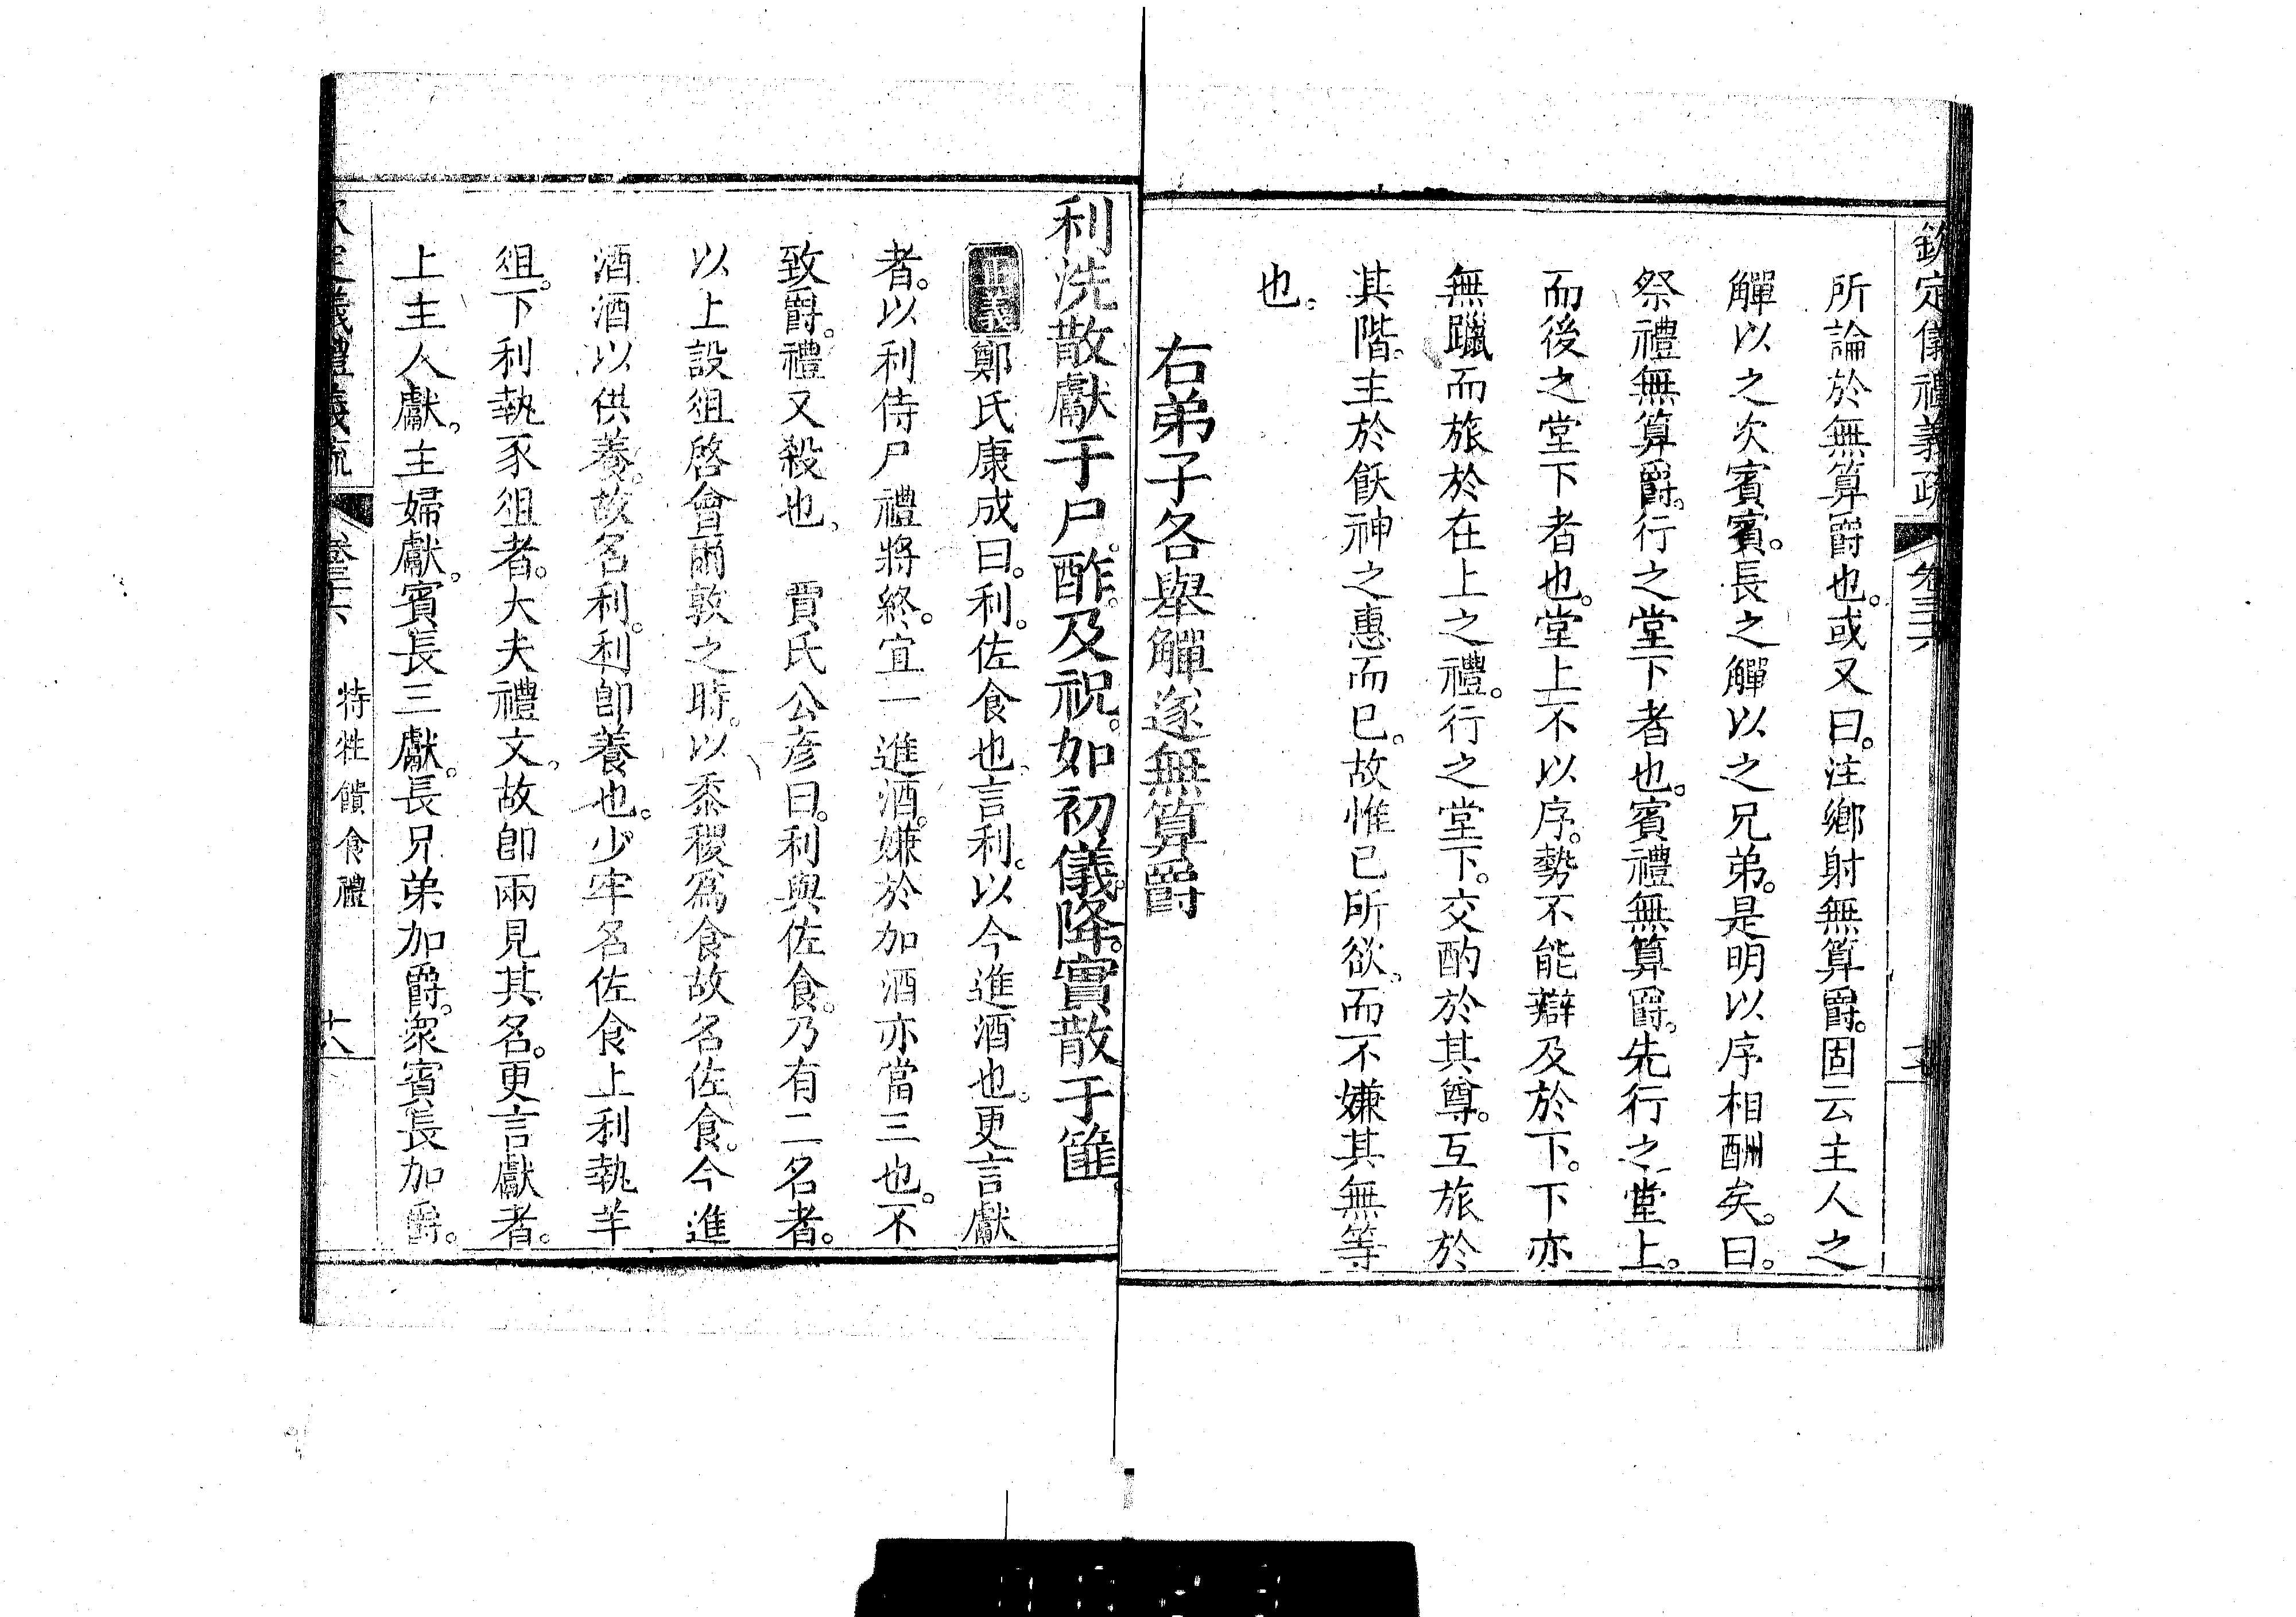 欽定儀禮義疏 卷三六
所論於無算爵也。或又曰。注鄉射無算爵。固云主人之
觶以之次賓。賓長之觶以之兄弟。是明以序相酬矣。曰。
祭禮無算爵。行之堂下者也。賓禮無算爵。先行之堂上。
而後之堂下者也。堂上不以序。勢不能辯及於下。下亦
無躐而旅於在上之禮。行之堂下。交酌於其尊。互旅於
其階。主於飫神之惠而已。故惟已所欲。而不嫌其無等
也。
右弟子各舉觶遂無算爵
利洗散獻于尸。酢。及祝。如初儀。降。實散于篚。
正義鄭氏康成曰。利。佐食也。言利。以今進酒也。更言獻
者。以利侍尸禮將終。宜一進酒。嫌於加酒亦當三也。不
致爵。禮又殺也。 賈氏公彥曰。利與佐食。乃有二名者。
以上設俎啓會爾敦之時。以黍稷爲食故名佐食。今進
酒酒以供養。故名利。利卽養也。少牢名佐食上利執羊
俎。下利執豕俎者。大夫禮文。故卽兩見其名。更言獻者。
上主人獻。主婦獻。賓長三獻。長兄弟加爵。衆賓長加爵。
欽定儀禮義疏 卷三六 特牲饋食禮 十八